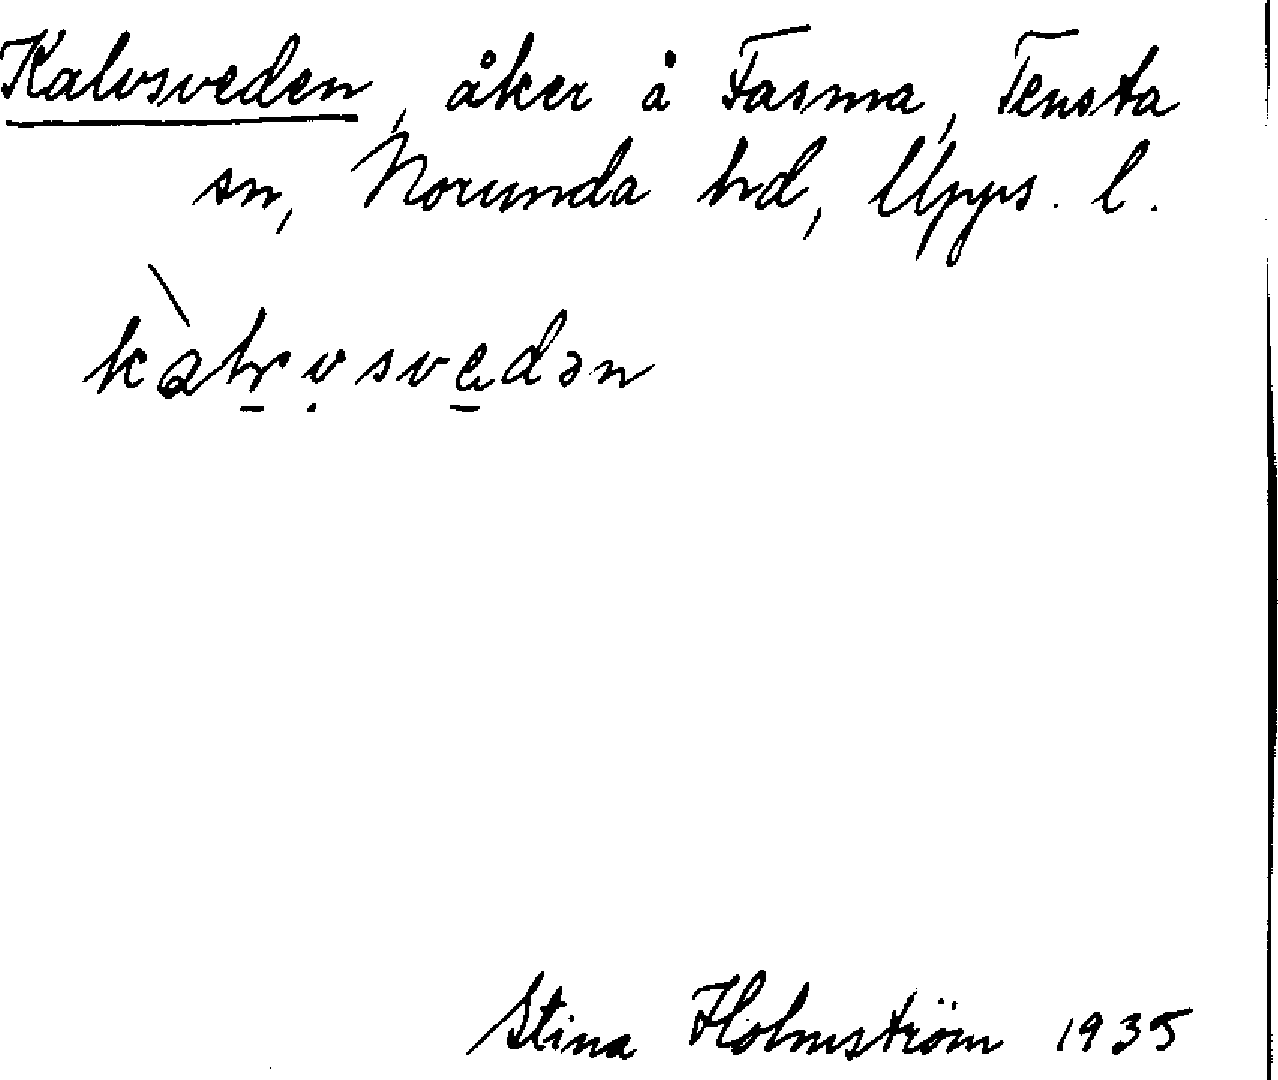 Kalvsveden, åker å Fasma, Tensta
sn, Norunda hd, Upps. l.
Stina Holmström 1935